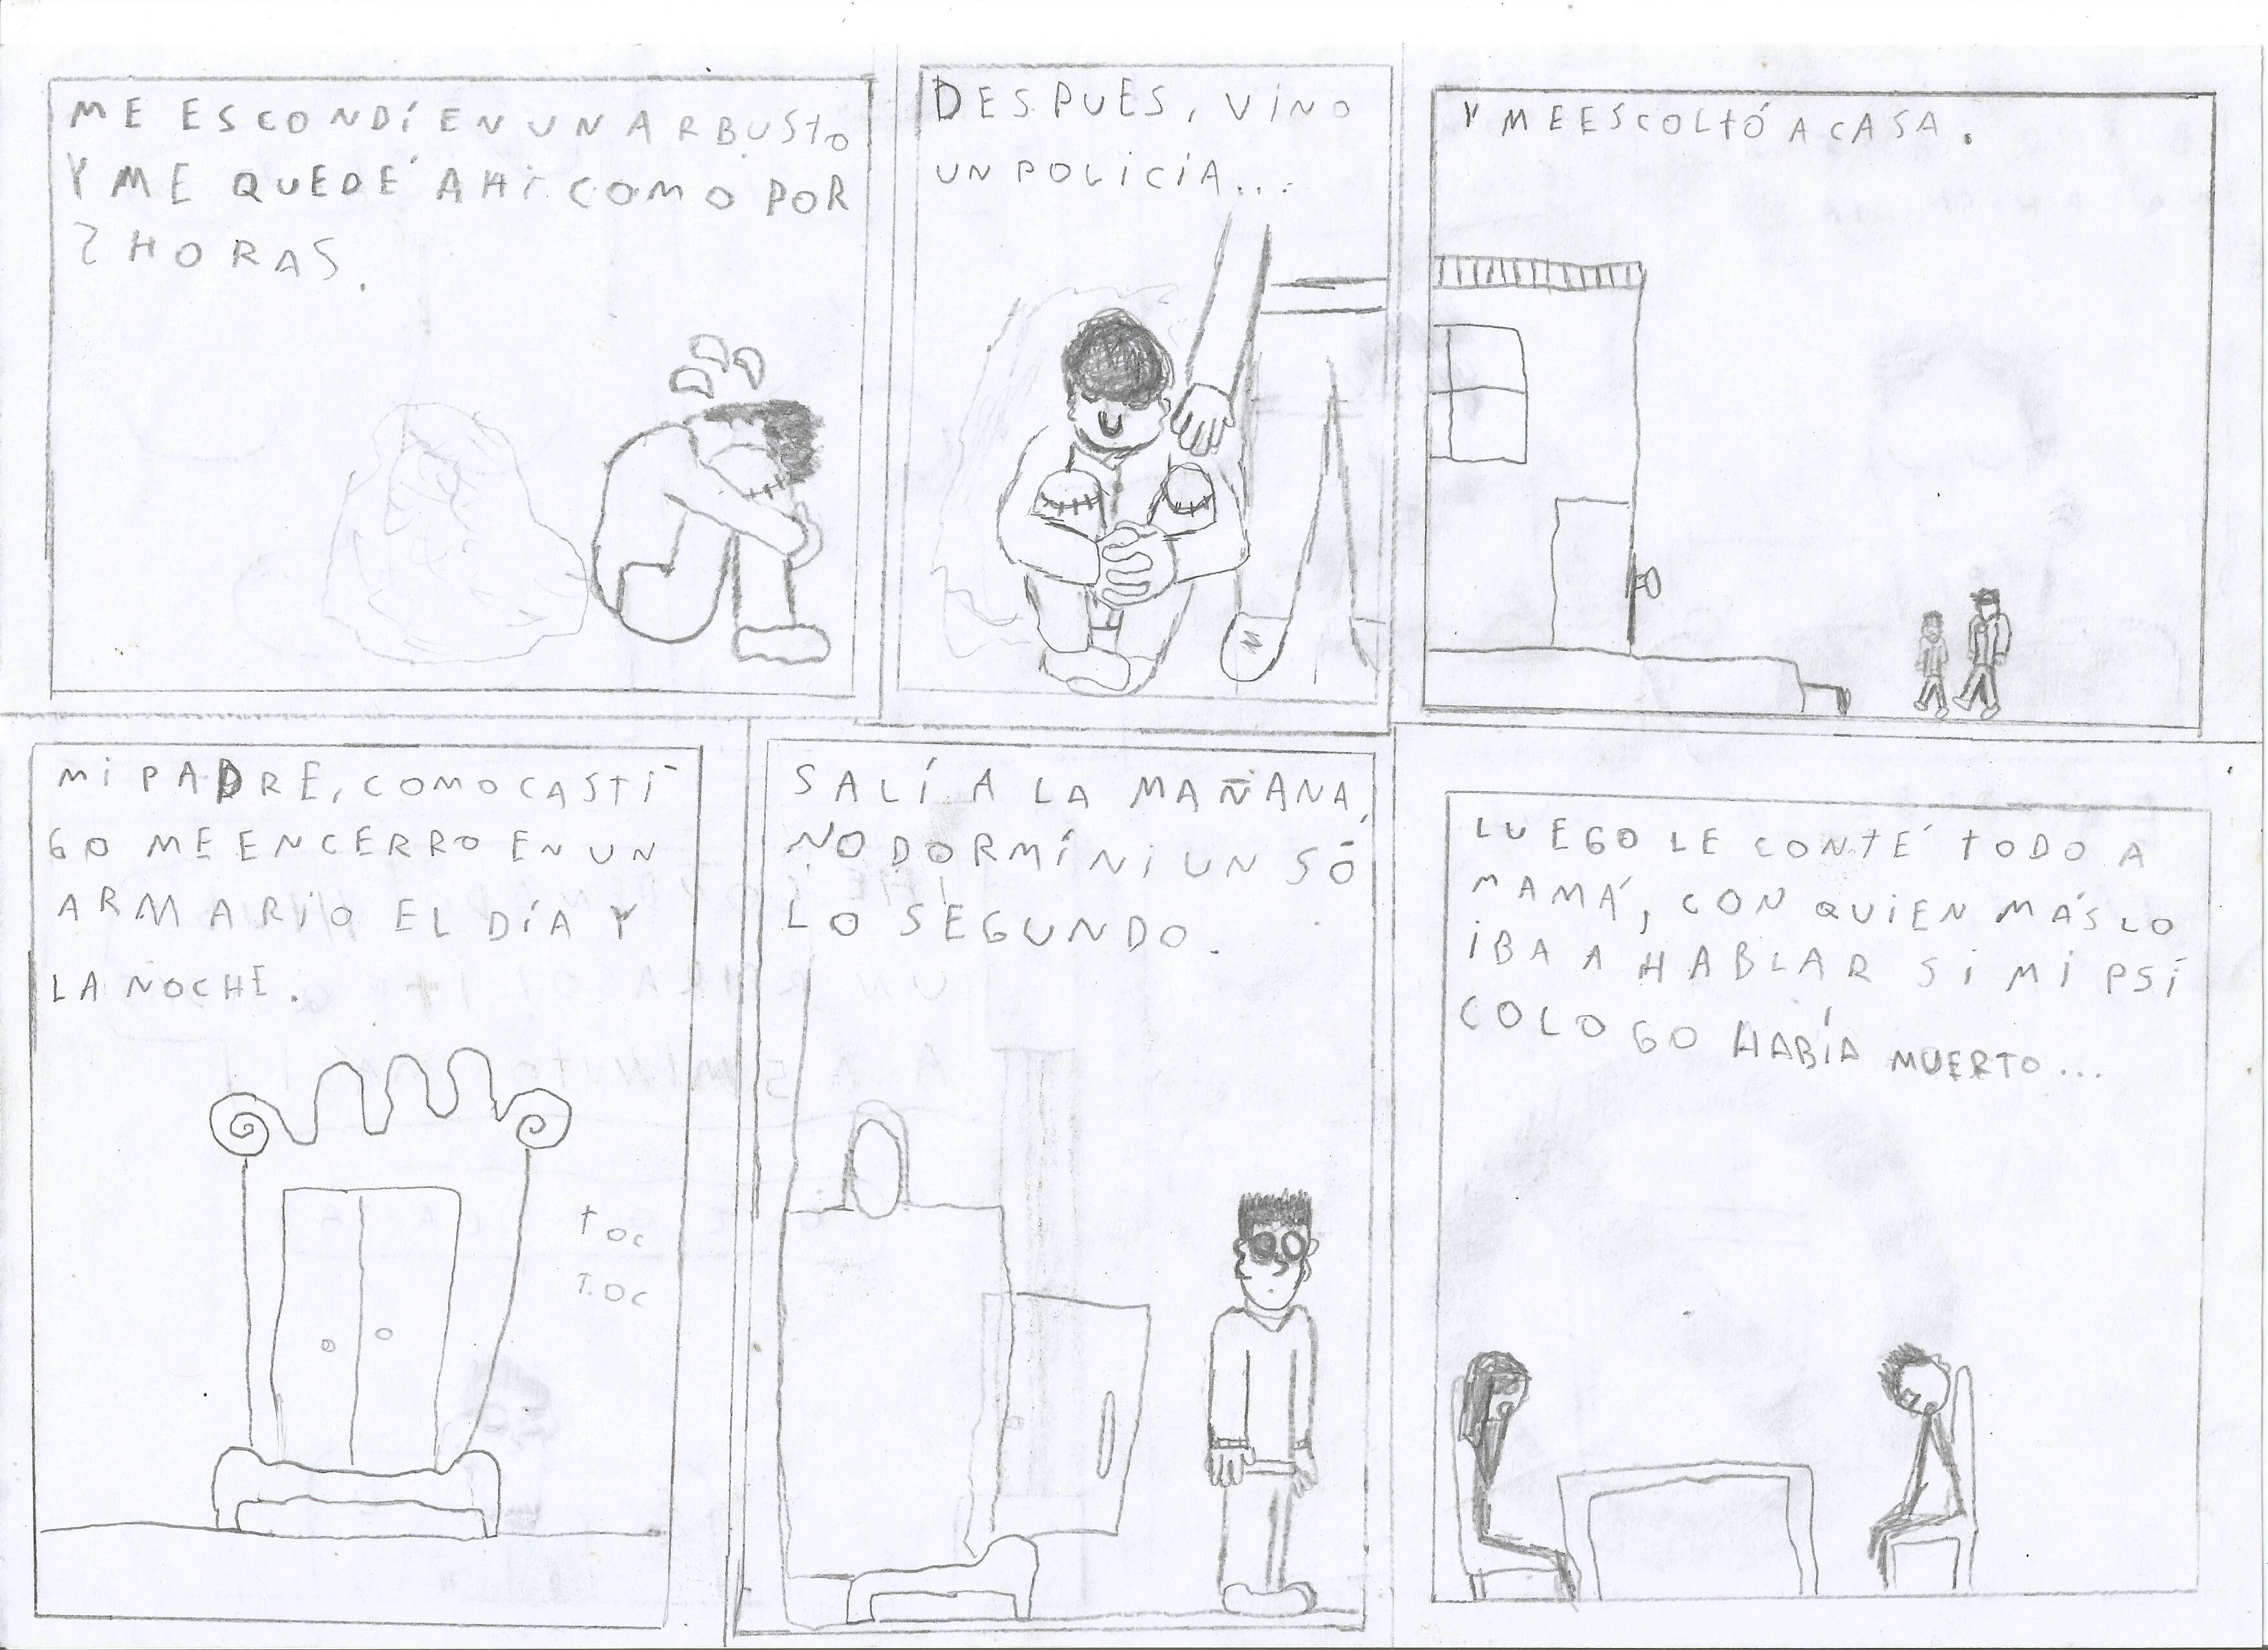 ME ESCONDÍ EN UN ARBUSTO
Y ME QUEDÉ AHÍ COMO POR
2 HORAS.
DESPUES, VINO
UN POLICIA...
Y ME ESCOLTÓ A CASA.
MI PADRE, COMO CASTI-
GO ME ENCERRO EN UN
ARMARIO EL DÍA Y
LA NOCHE.
TOC
TOC
SALÍ A LA MAÑANA,
NO DORMÍ NI UN SÓ
LO SEGUNDO.
LUEGO LE CONTÉ TODO A
MAMÁ, CON QUIEN MÁS LO
IBA A HABLAR SI MI PSI
COLOGO HABÍA MUERTO...